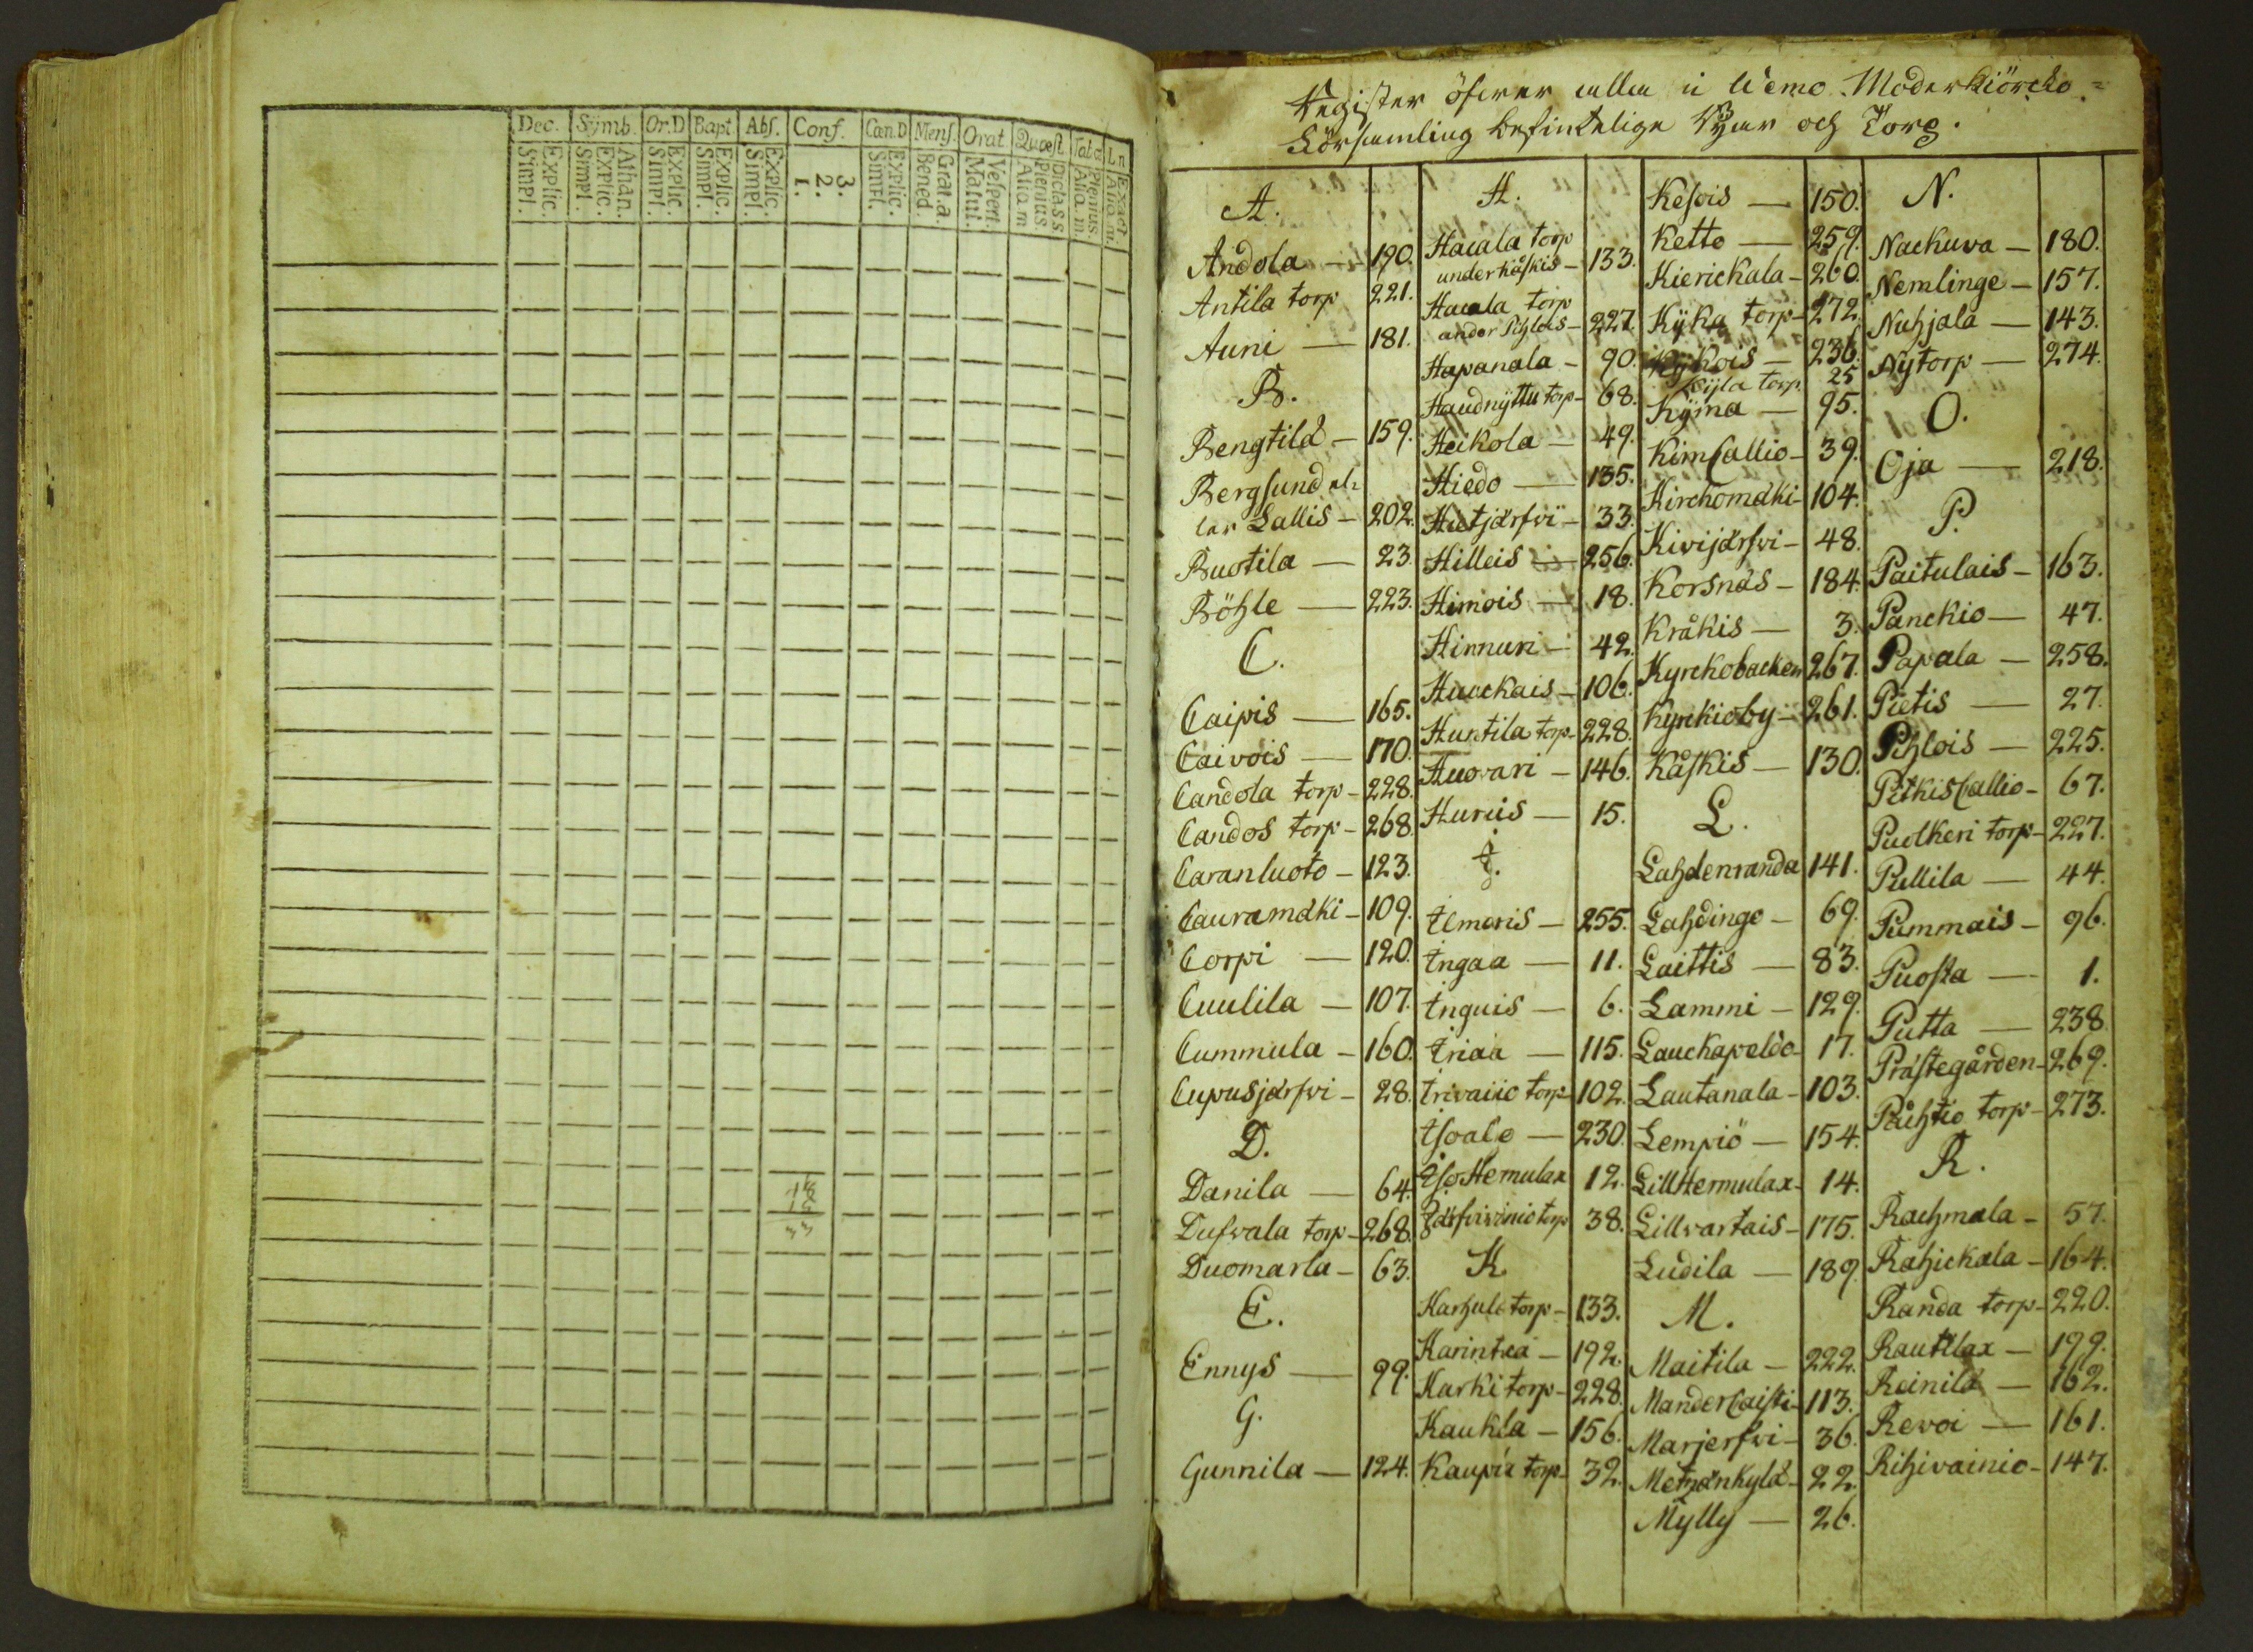 Dec. Symb. Or.D Bapt. Abs. Conf. Cœn.D Mens. Orat Quæst. Tab.œ L.n
Explic. Simpl. Athan. Explic. Simpl. Explic. Simpl. Explic. Simpl. Explic. Simpl. 3. 2. 1. Explic. Simpl. Grat.a Bened. Vespert. Matut. Dicta.s.s. Plenius. Alia m Plenius. Alia. m. Exact Alia m.
18
15
33
Register öfwer alla i Wemo Moderkiörcko=
Församling befintelige Byar och Torp.
A.
Andola — 190.
Antila torp 221.
Auni — 181.
B.
Bengtilä — 159.
Bergsund el=
ler Lallis — 202.
Buotila — 23.
Böhle — 223.
C.
Caipis — 165.
Caivois — 170.
Candola torp — 228.
Candos torp — 268.
Caranluoto — 123.
Cauramäki — 109.
Corpi — 120.
Cuulila — 107.
Cummula — 160.
Cupusjärfvi — 28.
D.
Danila — 64.
Dufvala torp — 268.
Duomarla — 63.
E.
Ennys — 99.
G.
Gunnila — 124.
H.
Hacala torp
under Kåskis — 133.
Hacala torp
under Pihlois — 227.
Hapanala — 90.
Haudnyttu torp — 68.
Heikola — 49.
Hiedo — 135.
Hietjärfvi — 33.
Hilleis — 256.
Himois — 18.
Hinnuri — 42.
Huockais — 106.
Huntila torp — 228.
Huovari — 146.
Huruis — 15.
I.
Ilmoris — 255.
Ingaa — 11.
Inguis — 6.
Iriaa — 115.
Irivaiio torp — 102.
Isoalo — 230.
Iso Hemulax 12.
Järfvivainio torp 38.
K.
Karhula torp — 133.
Karintaa — 192.
Karki torp — 228.
Kaukla — 156.
Kaupia torp — 32.
Kesois — 150.
Ketto — 259.
Kierickala — 260.
Kyka torp — 272.
Kykois — 236.
Kyla torp. 25
Kyma — 95.
Kimcallio — 39.
Kirckomäki — 104.
Kivijärfvi — 48.
Korsnäs — 184.
Kråkis — 3.
Kyrckobacken 267.
Kyrckioby — 261.
Kåskis — 130.
L.
Lahdenranda 141.
Lahdingo — 69.
Laittis — 83.
Lammi — 129.
Lauckapeldo — 17.
Lautanala — 103.
Lempiö — 154.
Lill Hermulax — 14.
Lillvartais — 175.
Ludila — 189.
M.
Maitila — 222.
Mandercaisti — 113.
Marjerfvi — 36.
Metzänkylä — 22.
Mylly — 26.
N.
Nackuva — 180.
Nemlinge — 157.
Nuhjala — 143.
Nytorp — 274.
O.
Oja — 218.
P.
Paitulais — 163.
Panckio — 47.
Papala — 258.
Pietis — 27.
Pihlois — 225.
Pitkiscallio — 67.
Puolkeri torp — 227.
Pullila — 44.
Pummais — 96.
Puosta — 1.
Putta — 238.
Prästegården — 269.
Påhtio torp — 273.
R.
Rachmala — 57.
Rahickala — 164.
Randa torp — 220.
Rautilax — 199.
Reinilä — 162.
Revoi — 161.
Rihivainio — 147.